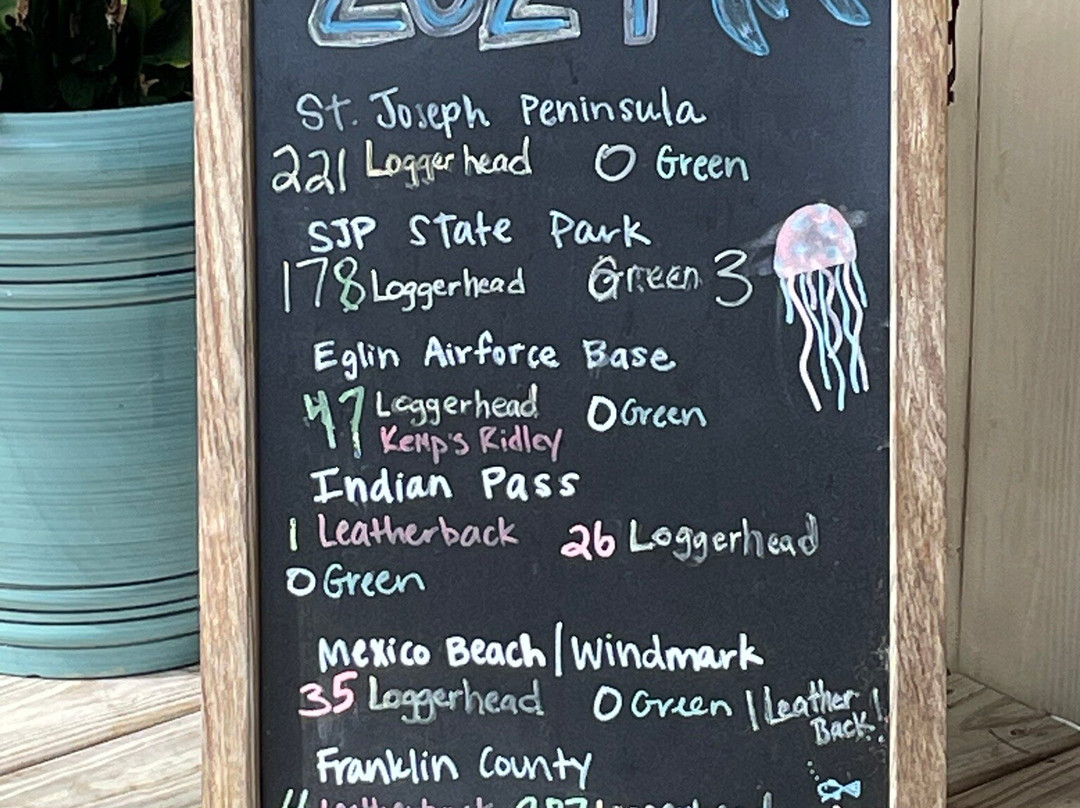 2024
St. Joseph Peninsula
221 Loggerhead 0 Green
SJP State Park
178 Loggerhead Green 3
Eglin Airforce Base
47 Loggerhead 0 Green
Kemp's Ridley
Indian Pass
1 Leatherback 26 Loggerhead
0 Green
Mexico Beach | Windmark
35 Loggerhead 0 Green 1 Leather
Back!
Franklin County
Leatherback Loggerhead